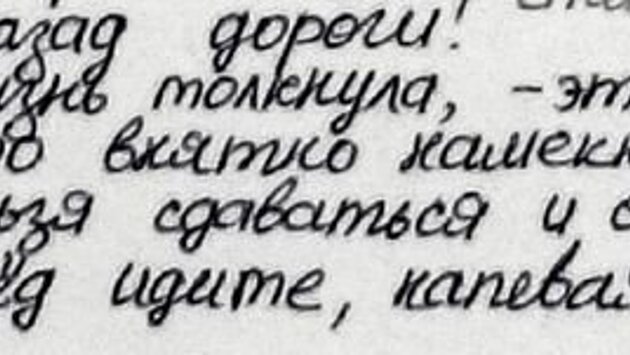 азад дороги!
изнь толкнула, - эт
то внятно намекн
ьзя сдаваться и с
ёд идите, напевая